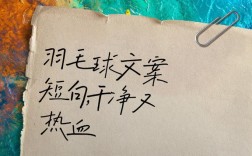 羽毛球文案
短句,干净又
热血